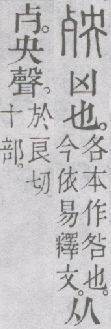 殃凶也。各本作咎也。今依易釋文。从
歺。央聲。於良切。十部。